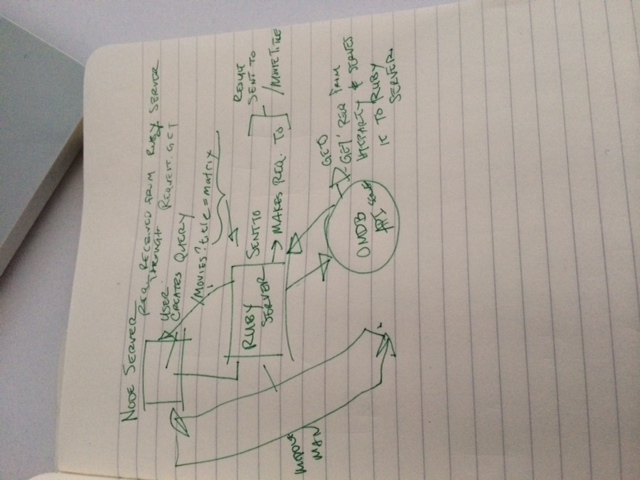 NODE SERVER
REQ RECEIVED FROM RUBY SERVER
through REQUEST.GET
USER
CREATES QUERY
/MOVIES?title=matrix
RUBY
SERVER
SENT TO
MAKES REQ. TO
SENT TO
/MOVIETITLE
MIDDLE
MAN
OMDB
API
GET
GET REQ FROM
& SERVES
IT TO RUBY
SERVER